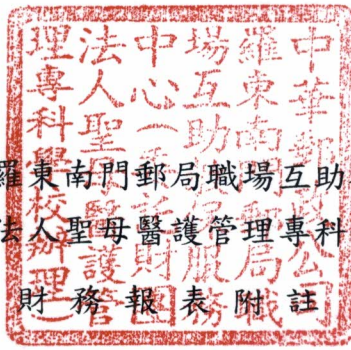 中華郵政公司
羅東南門郵局職
場互助保服務
中心(委託財團
法人聖母醫護管
理專科學校辦理)
羅東南門郵局職場互助
法人聖母醫護管理專科
財務報表附註